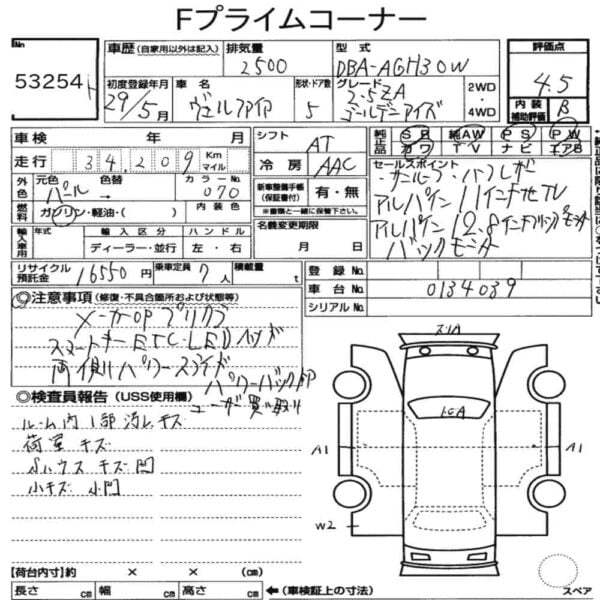 Fプライムコーナー
No 53254
車歴 (自家用以外は記入)
排気量 2500
型式 DBA-AGH30W
評価点 4.5
内装補助評価 B
初度登録年月 29/5月
車名 ヴェルファイア
形状・ドア数 5
グレード 2.5ZA
ゴールデンアイズ
2WD・4WD
車検 年 月
走行 34,209 Km マイル
シフト AT
冷房 AAC
純正品 SR 純AW PS PW
カワ TV ナビ エアB
外色 元色 パール 色替 → カラーNo 070
燃料 ガソリン・軽油・( ) 内装色
新車整備手帳(保証書付) 有・無
※書類と一緒に保管下さい。
セールスポイント
サンルーフ・ハーフレザー
アルパイン 11インチナビTV
アルパイン 12.8インチフリップモニター
バックモニター
輸入車用 年式 輸入区分 ハンドル
ディーラー・並行 左・右
名義変更期限 月 日
リサイクル預託金 16550円
乗車定員 7人
積載量 t
登録No.
車台No. 0134039
シリアルNo.
◎注意事項 (修復・不具合箇所および状態等)
メーカーOP プリクラ
スマートキー ETC・LEDヘッド
両側パワースライド
パワーバックドア
ユーザー買取り
◎検査員報告 (USS使用欄)
ルーム内1部汚レキズ
荷室 キズ
小キズ 小凹
A1 A1
W2
スペア
【荷台内寸】約 × × (cm)
長さ cm 幅 cm 高さ cm ←(車検証上の寸法)